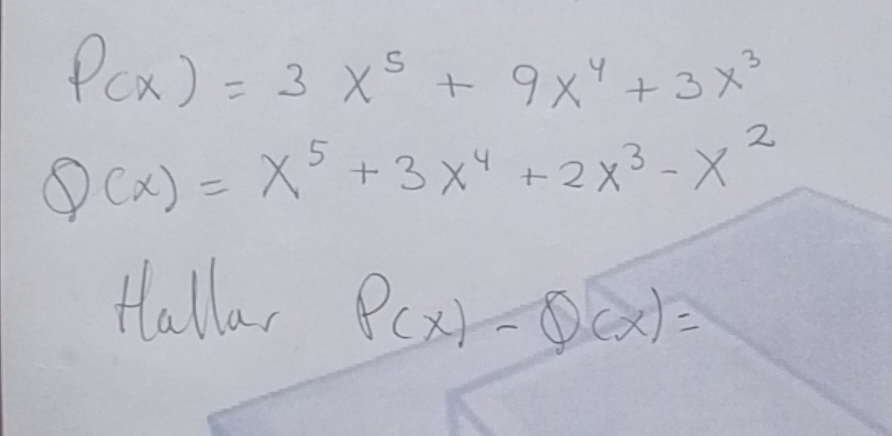 P(x) = 3x⁵ + 9x⁴ + 3x³
Q(x) = x⁵ + 3x⁴ + 2x³ - x²
Hallar P(x) - Q(x) =